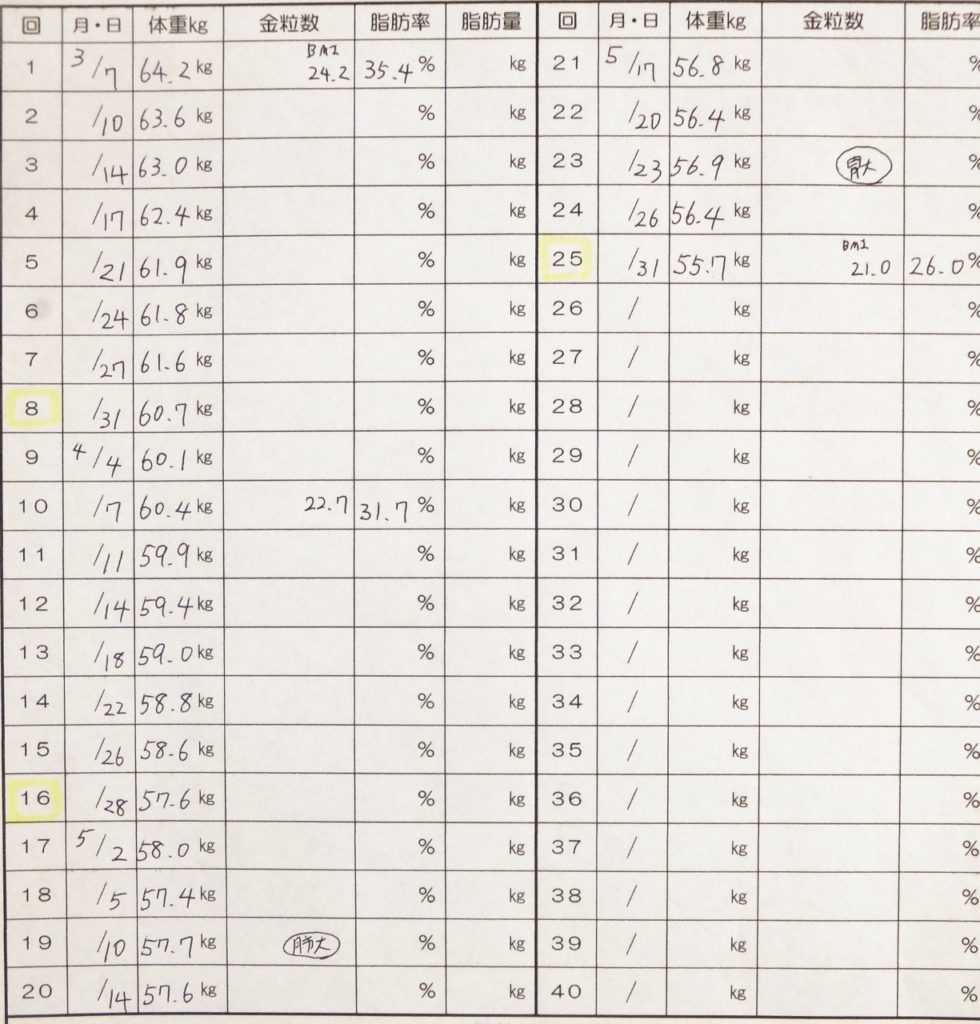 回 月・日 体重kg 金粒数 脂肪率 脂肪量 回 月・日 体重kg 金粒数 脂肪率
1 3/7 64.2 kg BMI 24.2 35.4 % kg 21 5/17 56.8 kg %
2 /10 63.6 kg % kg 22 /20 56.4 kg %
3 /14 63.0 kg % kg 23 /23 56.9 kg 胃大 %
4 /17 62.4 kg % kg 24 /26 56.4 kg %
5 /21 61.9 kg % kg 25 /31 55.7 kg BMI 21.0 26.0 %
6 /24 61.8 kg % kg 26 / kg %
7 /27 61.6 kg % kg 27 / kg %
8 /31 60.7 kg % kg 28 / kg %
9 4/4 60.1 kg % kg 29 / kg %
10 /7 60.4 kg 22.7 31.7 % kg 30 / kg %
11 /11 59.9 kg % kg 31 / kg %
12 /14 59.4 kg % kg 32 / kg %
13 /18 59.0 kg % kg 33 / kg %
14 /22 58.8 kg % kg 34 / kg %
15 /26 58.6 kg % kg 35 / kg %
16 /28 57.6 kg % kg 36 / kg %
17 5/2 58.0 kg % kg 37 / kg %
18 /5 57.4 kg % kg 38 / kg %
19 /10 57.7 kg 肺大 % kg 39 / kg %
20 /14 57.6 kg % kg 40 / kg %